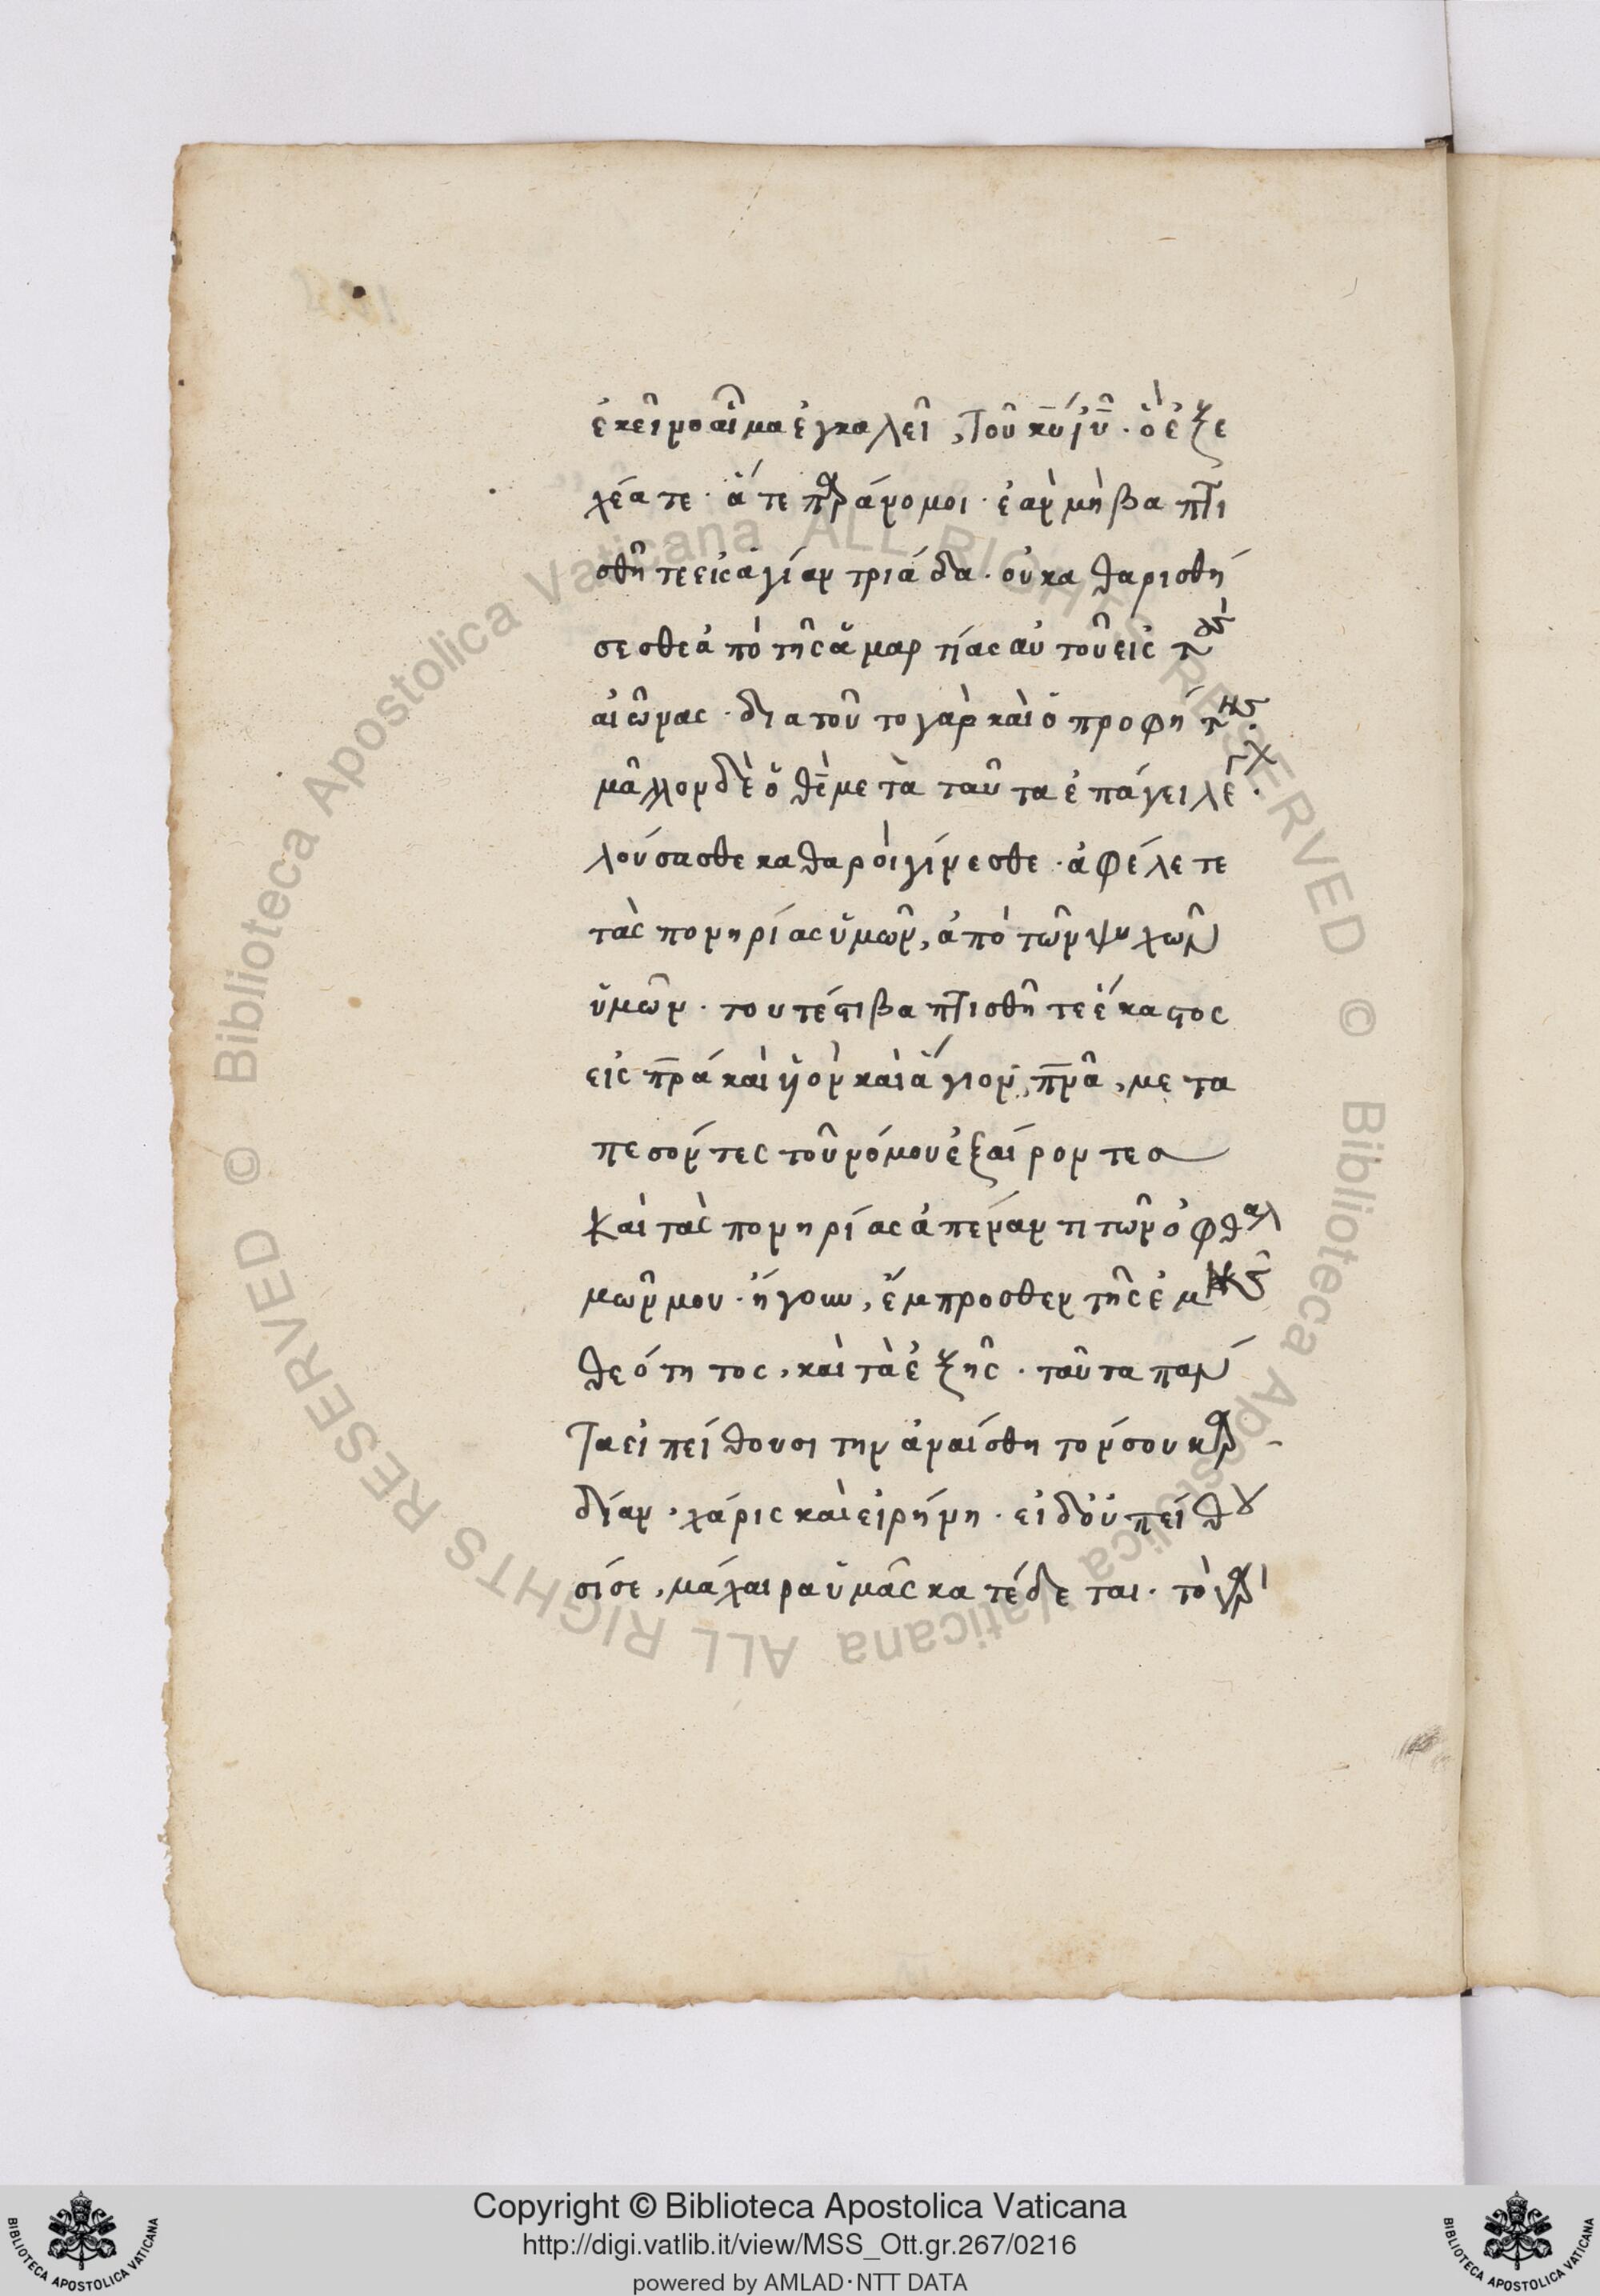 ἐκεῖνο αἷμα ἐγκαλεῖ, τοῦ κ̅υ̅ ἰ̅υ̅· ὃ ἐξε
χέατε· ἅτε παράνομοι· ἐὰν μὴ βαπτι
σθῆτε εἰς ἁγίαν τριάδα· οὐ καθαρισθή
σεσθε ἀπὸ τῆς ἁμαρτίας αὐτοῦ εἰς τοὺς
αἰῶνας· διὰ τοῦτο γὰρ καὶ ὁ προφήτης·
μᾶλλον δὲ ὁ θ̅ς̅ μετὰ ταῦτα ἐπάγει λέγων·
λούσασθε καθαροὶ γίνεσθε· ἀφέλετε
τὰς πονηρίας ὑμῶν, ἀπὸ τῶν ψυχῶν
ὑμῶν· τουτέστι βαπτισθῆτε ἕκαστος
εἰς π̅ρ̅α̅ καὶ υἱὸν καὶ ἅγιον π̅ν̅α̅, μετα
πεσόντες τοῦ νόμου ἐξαίροντες
καὶ τὰς πονηρίας ἀπέναντι τῶν ὀφθαλ
μῶν μου· ἤγουν, ἔμπροσθεν τῆς ἐμῆς
θεότητος, καὶ τὰ ἑξῆς· ταῦτα πάν
τα εἰ πείθουσι τὴν ἀναίσθητόν σου καρ-
δίαν, χάρις καὶ εἰρήνη· εἰ δ' οὐ πείθου
σί σε, μάχαιρα ὑμᾶς κατέδεται· τὸ γὰρ
Copyright © Biblioteca Apostolica Vaticana
http://digi.vatlib.it/view/MSS_Ott.gr.267/0216
powered by AMLAD·NTT DATA
BIBLIOTECA APOSTOLICA VATICANA
BIBLIOTECA APOSTOLICA VATICANA
© Biblioteca Apostolica Vaticana ALL RIGHTS RESERVED © Biblioteca Apostolica Vaticana ALL RIGHTS RESERVED